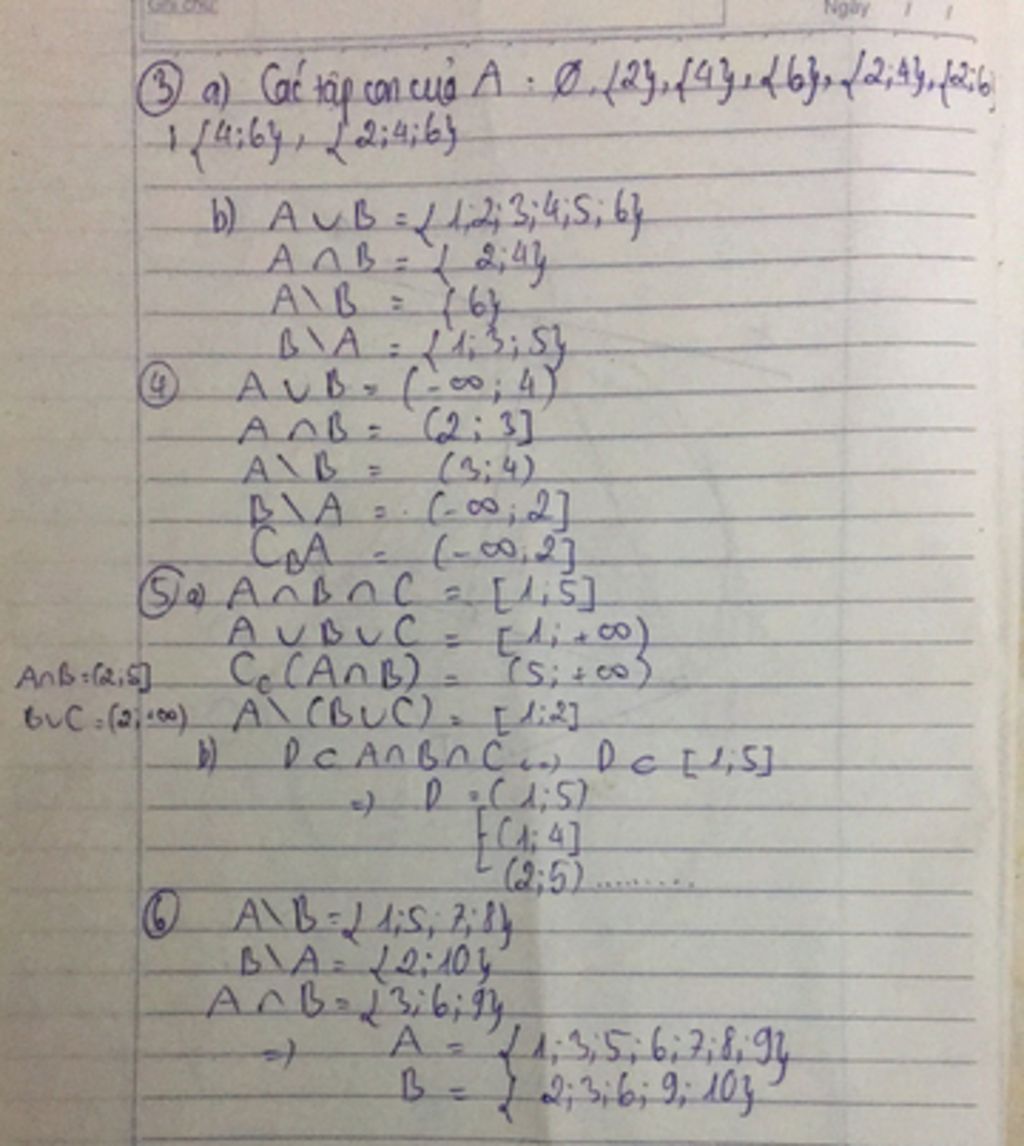 Ghi chú:
Ngày / /
③ a) Các tập con của A : Ø, {2}, {4}, {6}, {2;4}, {2;6
, {4;6}, {2;4;6}
b) A ∪ B = {1;2;3;4;5;6}
A ∩ B = { 2;4}
A \ B = {6}
B \ A = {1;3;5}
④ A ∪ B = (-∞; 4)
A ∩ B = (2; 3]
A \ B = (3;4)
B \ A = (-∞; 2]
C_B A = (-∞; 2]
⑤ a) A ∩ B ∩ C = [1;5]
A ∪ B ∪ C = [1; +∞)
A∩B=(2;5] C_C (A∩B) = (5; +∞)
B∪C=(2;+∞) A \ (B∪C) = [1;2]
b) D ⊂ A ∩ B ∩ C <=> D ⊂ [1;5]
=> D = (1;5)
[ (1;4]
(2;5) .........
⑥ A \ B = {1;5;7;8}
B \ A = {2;10}
A ∩ B = {3;6;9}
=> A = {1;3;5;6;7;8;9}
B = { 2;3;6;9;10}